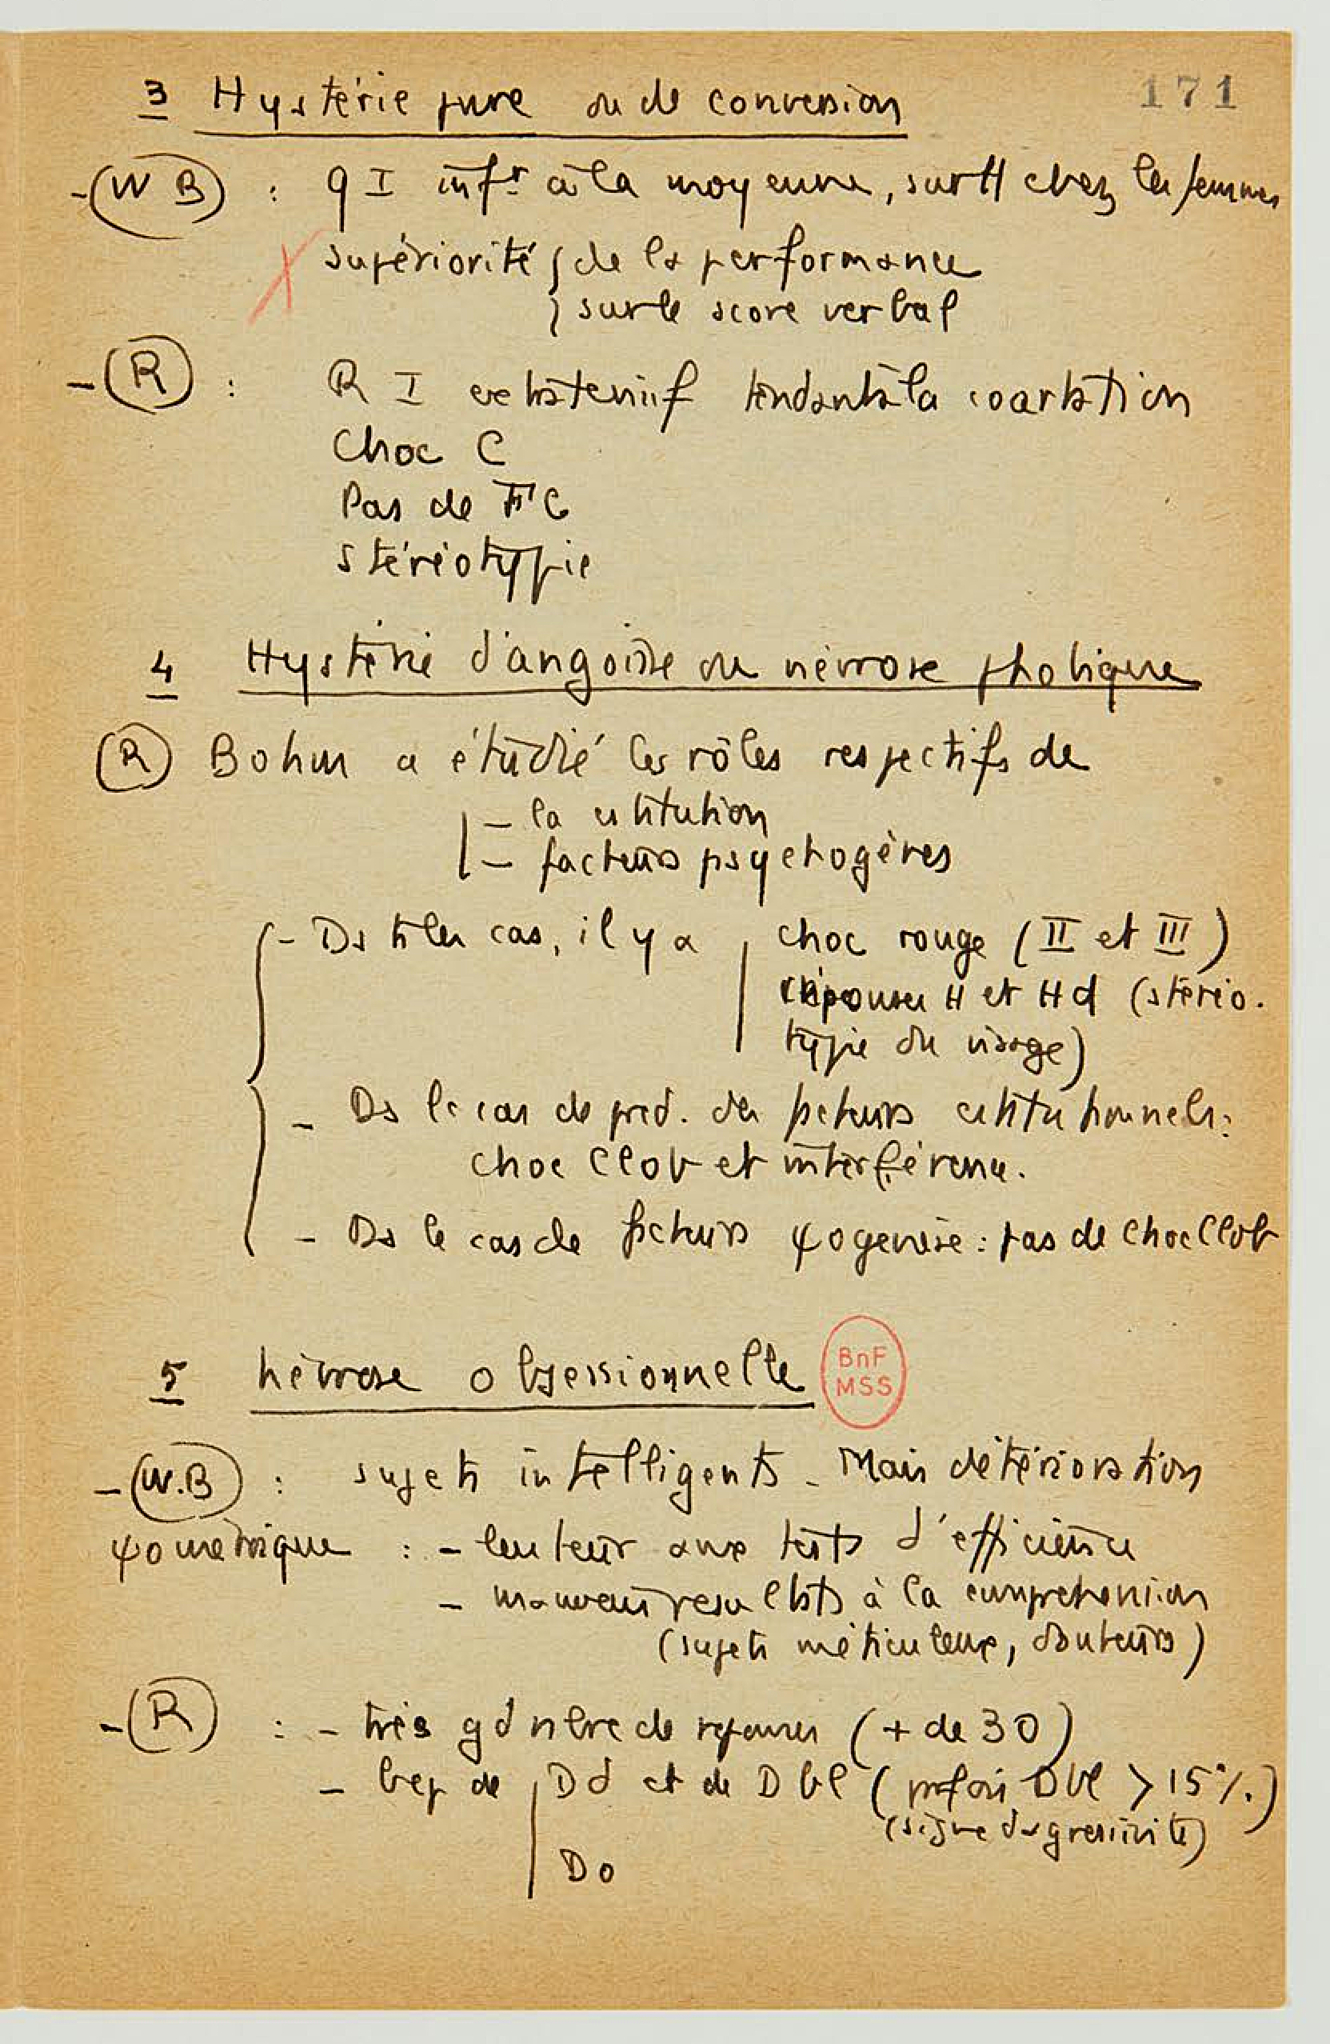 171
3 Hystérie pure ou de conversion
- (WB) : QI infr à la moyenne, surtt chez les femmes
supériorité { de la performance
sur le score verbal
- (R) : R I extratensif tendant à la coartation
Choc C
Pas de FC
Stéréotypie
4 Hystérie d'angoisse ou névrose phobique
(R) Bohm a étudié les rôles respectifs de
- la cstitution
- facteurs psychogènes
- Ds ts les cas, il y a choc rouge (II et III)
réponses H et Hd (stéréo-
typie du visage)
- Ds le cas de pred. des facteurs cstitutionnels :
choc Clob et interférence.
- Ds le cas de facteurs ψogenèse : pas de choc Clob
5 Névrose obsessionnelle
BnF
MSS
- (W.B) : sujets intelligents - Mais détérioration
ψométrique : - lenteur aux tests d'efficience
- mauvais resultats à la comprehension
(sujets méticuleux, douteurs)
- (R) : - très gd nbre de reponses (+ de 30)
- bcp de Dd et de Dbl (parfois Dbl > 15%.)
(signe d'agressivité)
Do